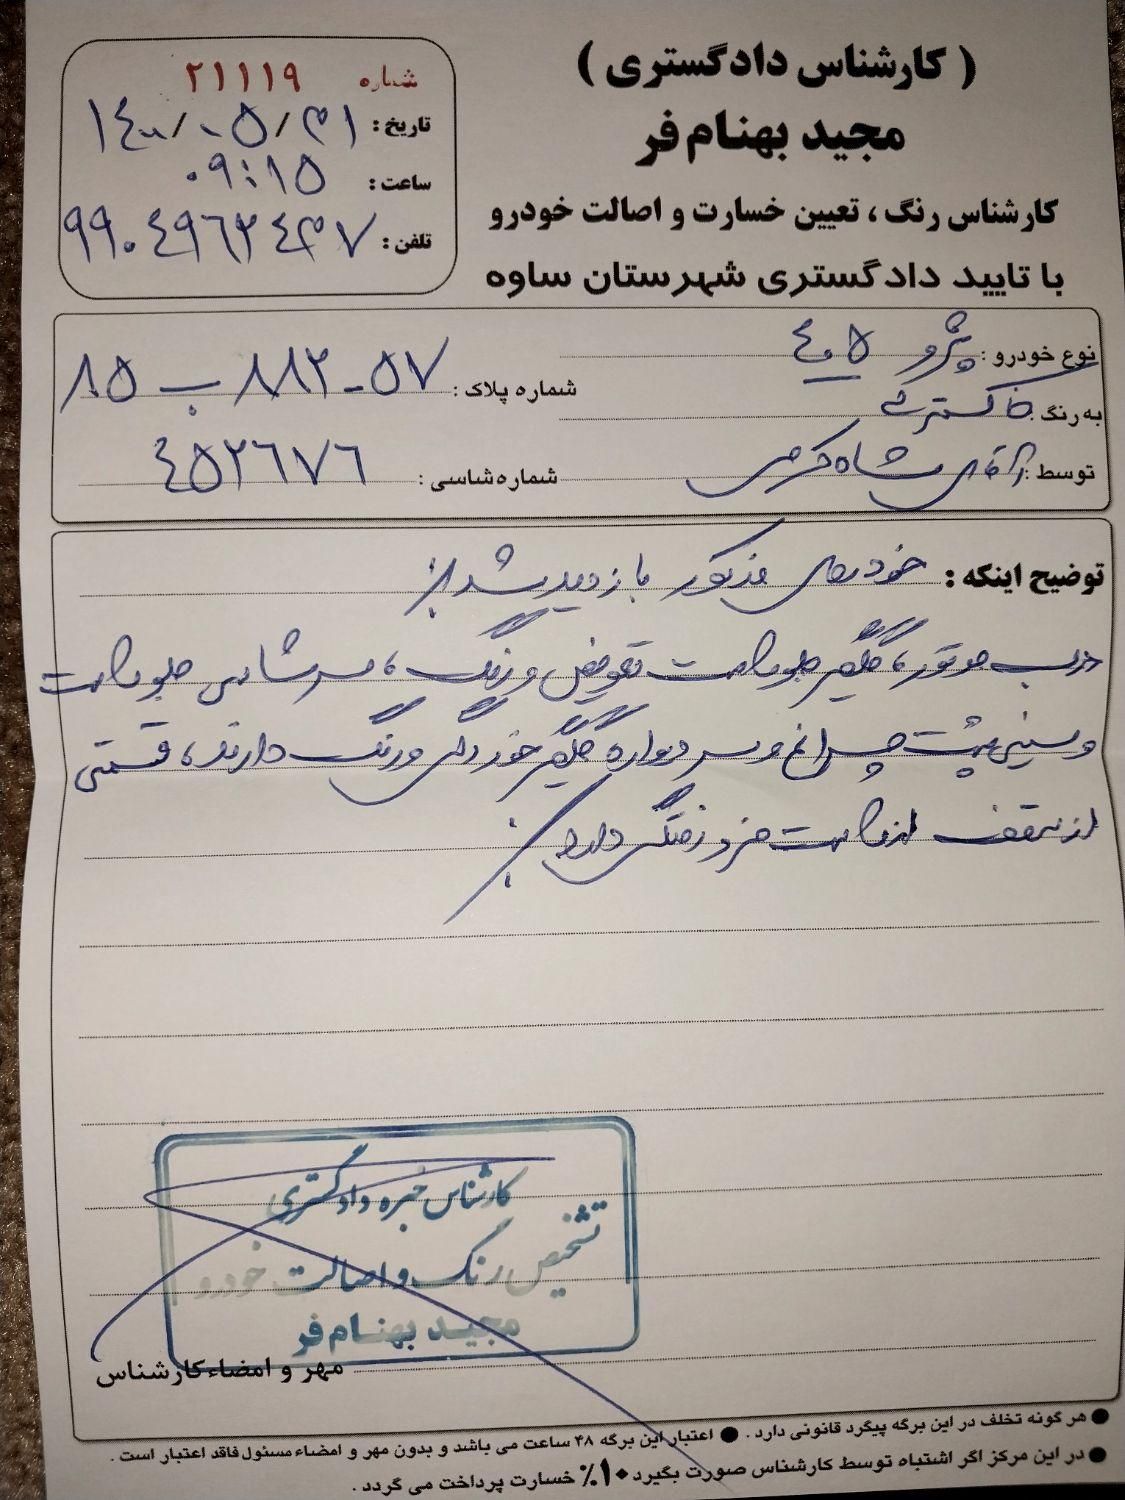 ( کارشناس دادگستری )
مجید بهنام فر
کارشناس رنگ ، تعیین خسارت و اصالت خودرو
با تایید دادگستری شهرستان ساوه
شماره ۲۱۱۱۹
تاریخ : ۱۴۰۰/۰۵/۳۱
ساعت : ۰۹:۱۵
تلفن : ۹۹۰۴۹۶۲۴۳۷
نوع خودرو : پژو ۴۰۵
شماره پلاک : ۸۵ ب ۸۸۲-۵۷
به رنگ : خاکستری
توسط : آقای شاه کرمی
شماره شاسی : ۴۵۲۶۷۶
توضیح اینکه : خودروی مذکور بازدید شد از
درب موتور، گلگیر جلو راست تعویض و رنگ، سر شاسی جلو راست
و سینی پشت چراغ و سر دیواره گلگیر خوردگی و رنگ دارند، قسمتی
از سقف از راست فرورفتگی دارد
کارشناس خبره دادگستری
تشخیص رنگ و اصالت خودرو
مجید بهنام فر
مهر و امضاء کارشناس
● هر گونه تخلف در این برگه پیگرد قانونی دارد . ● اعتبار این برگه ۴۸ ساعت می باشد و بدون مهر و امضاء مسئول فاقد اعتبار است .
● در این مرکز اگر اشتباه توسط کارشناس صورت بگیرد ۱۰٪ خسارت پرداخت می گردد .